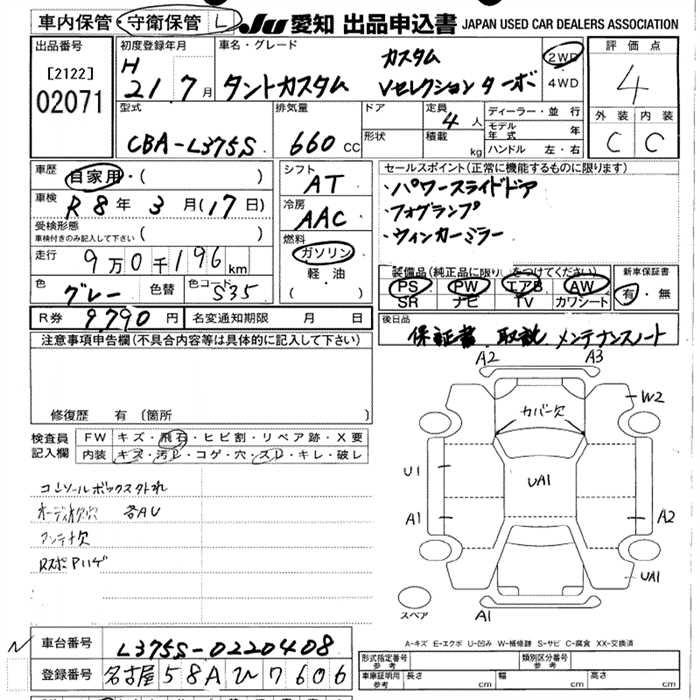 車内保管・守衛保管 L JU 愛知 出品申込書 JAPAN USED CAR DEALERS ASSOCIATION
出品番号
[2122]
02071
初度登録年月
H 21. 7 月
車名・グレード
カスタム
タントカスタム Vセレクション ターボ
2WD
4WD
評価点
4
外装 内装
C C
型式
CBA-L375S
排気量
660 CC
ドア
形状
定員 4 人
積載 kg
ディーラー・並行
モデル年式 年
ハンドル 左・右
車歴 自家用・( )
車検 R8年 3月(17日)
受検形態
車検付きのみ記入して下さい ( )
走行 9万0千196 km
色 グレー 色替 色コード S35
R券 9,790 円 名変通知期限 月 日
シフト
AT
冷房
AAC
燃料
ガソリン
軽・油
( )
セールスポイント(正常に機能するものに限ります)
・パワースライドドア
・フォグランプ
・ウィンカーミラー
装備品(純正品に限り○をつけてください)
PS PW エアB AW
SR ナビ TV カワシート
新車保証書
有・無
後日品
保証書、取説、メンテナンスノート
注意事項申告欄(不具合内容等は具体的に記入して下さい)
修復歴 有(箇所 )
検査員記入欄
FW キズ・飛石・ヒビ割・リペア跡・X要
内装 キズ・汚レ・コゲ・穴・スレ・キレ・破レ
コンソールボックス外れ
オーディオ欠穴 各AU
アンテナ欠
RスポPハゲ
A2 A3
カバー欠
W2
U1
UA1
A1
A2
UA1
スペア
A1
A-キズ E-エクボ U-凹み W-補修跡 S-サビ C-腐食 XX-交換済
車台番号 L375S-0220408
登録番号 名古屋58Aひ7606
形式指定番号
参考
類別区分番号
参考
車庫証明用
参考
長さ cm 幅 cm 高さ cm